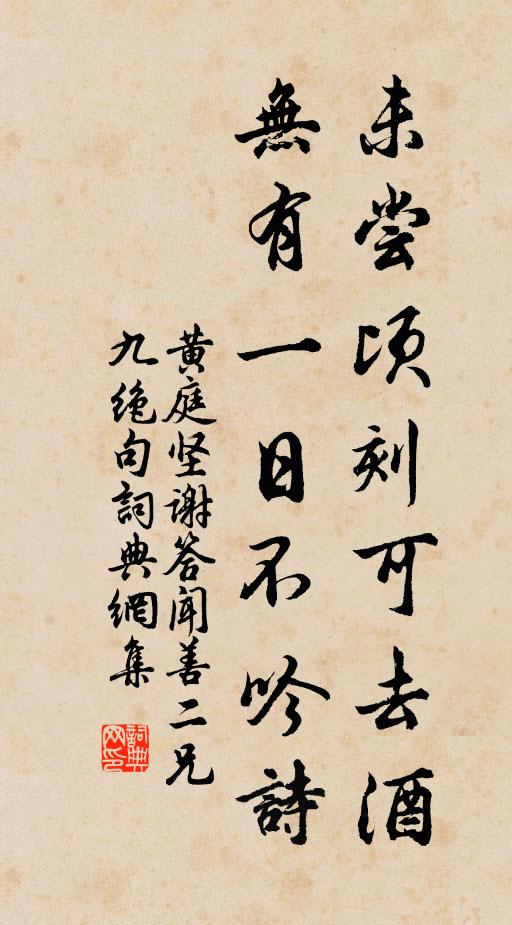 未尝頃刻可去酒
無有一日不吟詩
黄庭坚谢答闻善二兄
九绝句詞典網集
詞典网印